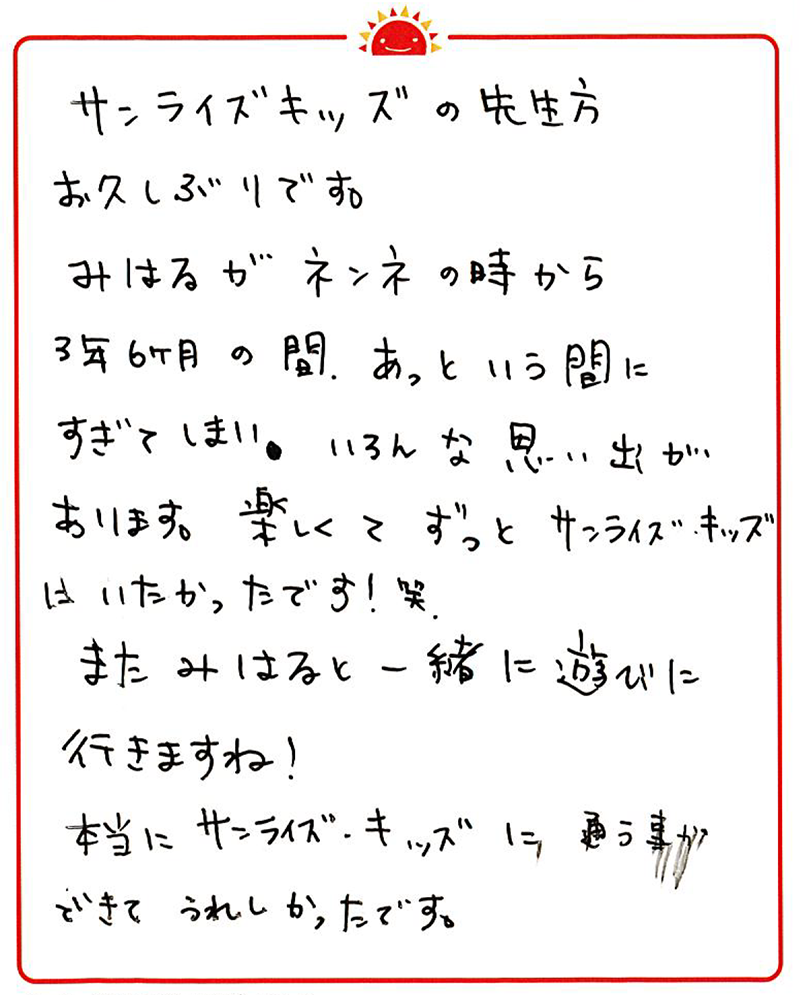 サンライズキッズの先生方
お久しぶりです。
みはるが ネンネの時から
3年6ヶ月の間、あっという間に
すぎてしまい。いろんな思い出が
あります。楽しくて ずっと サンライズ・キッズ
は いたかったです！笑.
また みはると一緒に遊びに
行きますね！
本当に サンライズ・キッズに、通う事が
できて うれしかったです。